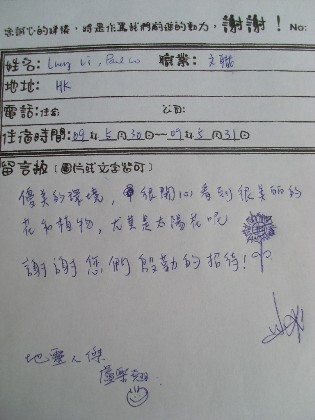 您誠心的建議,將是作為我們前進的動力,謝謝! No:
姓名: Lucy Li, Paul Lo 職業: 文職
地址: HK
電話: 住宅: 公司:
住宿時間: 09年5月30日~09年5月31日
留言板(圖片或文字皆可)
優美的環境,很開心看到很美麗的
花和植物,尤其是太陽花呢
謝謝您們殷勤的招待!
地靈人傑
盧樂